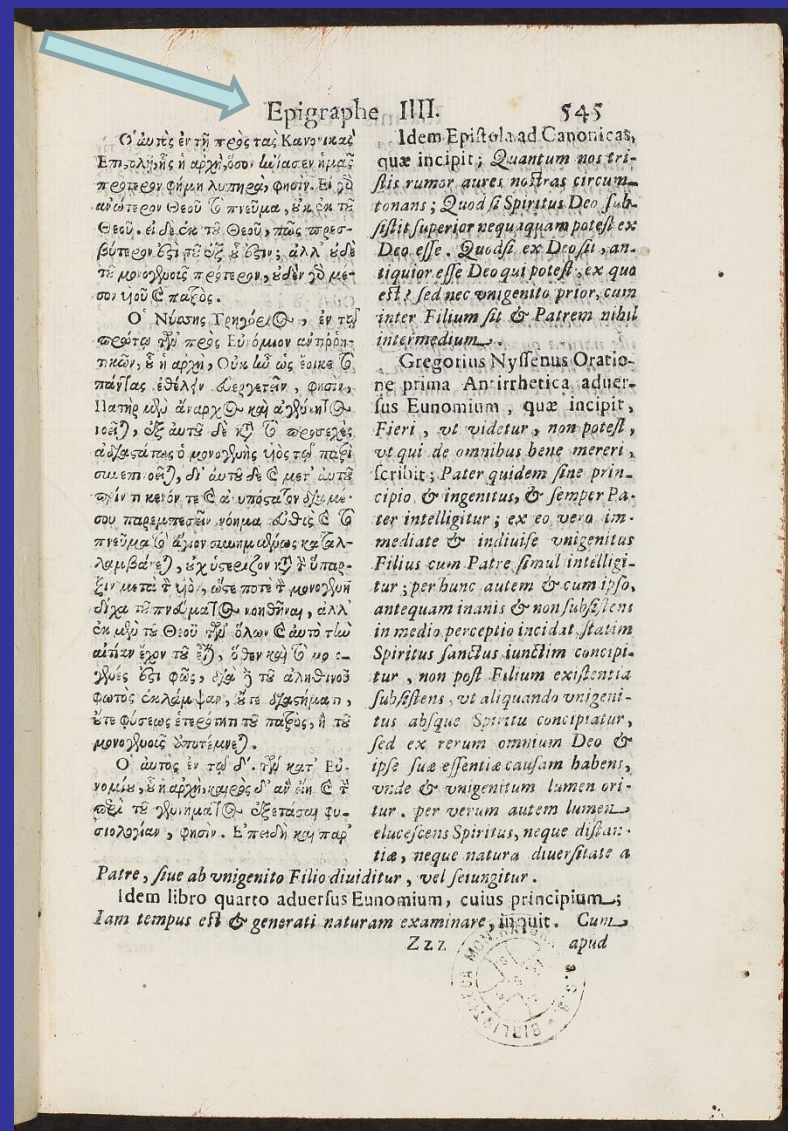 Epigraphe IIII. 545
Ὁ αὐτὸς ἐν τῇ πρὸς τὰς Κανονικὰς
Ἐπιστολῇ, ἧς ἡ ἀρχὴ, ὅσον ἡμᾶς
πρότερον φήμη λυπηρὰ, φησίν. Εἰ γὸ
ἀνώτερον Θεοῦ τὸ πνεῦμα, ἐκ τοῦ
Θεοῦ. εἰ δὲ ἐκ τοῦ Θεοῦ, πῶς πρεσ-
βύτερον ἀλλ' οὐδὲ
τοῦ μονογενοῦς πρότερον, οὐδὲν γὸ μέ-
σον υἱοῦ καὶ πατρός.
Ὁ Νύσσης Γρηγόριος, ἐν τῷ
πρώτῳ τῶν πρὸς Εὐνόμιον ἀντιῤῥη-
τικῶν, οὗ ἡ ἀρχὴ, Οὐκ ἦν ὡς ἔοικε τὸ
πάντας ἐθέλειν εὐεργετεῖν, φησὶν,
Πατὴρ μὲν ἄναρχος καὶ ἀγέννητος
ἐξ αὐτοῦ δὲ
ὁ μονογενὴς υἱὸς τῷ πατρὶ
δι' αὐτοῦ δὲ καὶ μετ' αὐτοῦ
πρίν τι κενόν τε καὶ ἀνυπόστατον διὰ μέ-
σου παρεμπεσεῖν νόημα εὐθὺς καὶ τὸ
πνεῦμα τὸ ἅγιον συνημμένως καταλ-
λαμβάνεται, οὐχ ὑστερίζον
μετὰ τὸν υἱὸν, ὥστε ποτὲ τὸν μονογενῆ
δίχα τοῦ πνεύματος νοηθῆναι, ἀλλ'
ἐκ μὲν τοῦ Θεοῦ τῶν ὅλων καὶ αὐτὸ τὴν
αἰτίαν ἔχον τοῦ ὅθεν καὶ τὸ μονο-
γενές ἐστι φῶς, διὰ δὲ τοῦ ἀληθινοῦ
φωτὸς ἐκλάμψαν, οὔτε διαστήματι,
οὔτε φύσεως ἑτερότητι τοῦ πατρὸς, ἢ τοῦ
μονογενοῦς ἀποτέμνεται.
Ὁ αὐτὸς ἐν τῷ δ'. τῶν κατ' Εὐ-
νομίου, οὗ ἡ ἀρχὴ, καιρὸς δ' ἂν εἴη καὶ τὴν
περὶ τοῦ γεννήματος ἐξετάσαι φυ-
σιολογίαν, φησιν. Ἐπειδὴ καὶ παρ'
Idem Epistola ad Canonicas,
quæ incipit; Quantum nos tri-
stis rumor aures nostras circum-
tonans; Quod si Spiritus Deo sub-
sistit superior nequaquam potest ex
Deo esse. Quodsi ex Deo sit, an-
tiquior esse Deo qui potest, ex quo
est? sed nec vnigenito prior, cum
inter Filium sit & Patrem nihil
intermedium.
Gregorius Nyssenus Oratio-
ne prima Antirrhetica aduer-
sus Eunomium, quæ incipit,
Fieri, vt videtur, non potest,
vt qui de omnibus bene mereri,
scribit; Pater quidem sine prin-
cipio & ingenitus, & semper Pa-
ter intelligitur; ex eo vero im-
mediate & indiuise vnigenitus
Filius cum Patre simul intelligi-
tur; per hunc autem & cum ipso,
antequam inanis & non subsistens
in medio perceptio incidat statim
Spiritus sanctus iunctim concipi-
tur, non post Filium existentia
subsistens, vt aliquando vnigeni-
tus absque Spiritu concipiatur,
sed ex rerum omnium Deo &
ipse suæ essentiæ causam habens,
vnde & vnigenitum lumen ori-
tur. per verum autem lumen
elucescens Spiritus, neque distan-
tiæ, neque natura diuersitate a
Patre, siue ab vnigenito Filio diuiditur, vel seiungitur.
Idem libro quarto aduersus Eunomium, cuius principium;
Iam tempus est & generati naturam examinare, inquit. Cum
Zzz apud